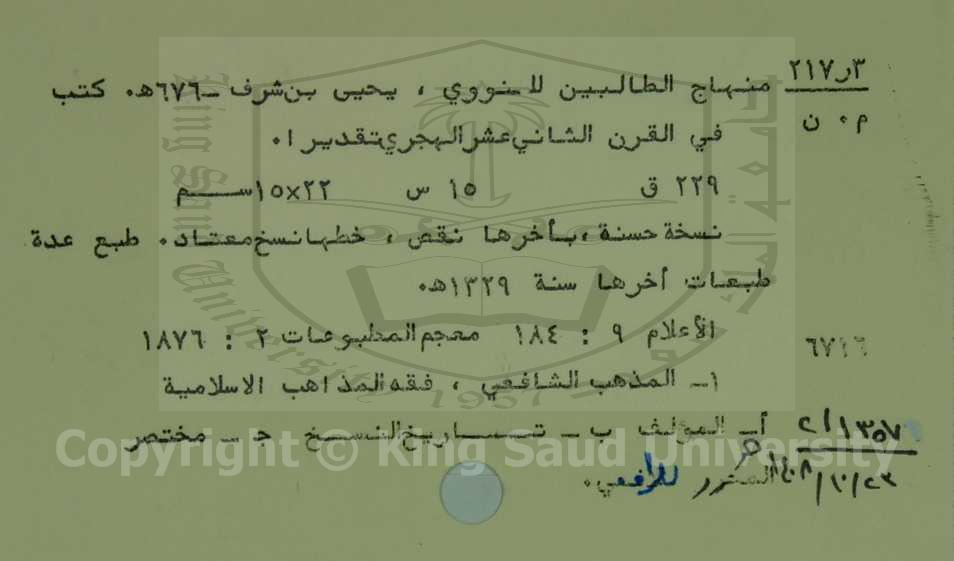 ٢١٧ر٣ منهاج الطالبين للنووي ، يحيى بن شرف -٦٧٦هـ. كتب
م . ن في القرن الثاني عشر الهجري تقديرا .
٢٢٩ ق ١٥ س ٢٢×١٥ سم
نسخة حسنة ، بآخرها نقص ، خطها نسخ معتاد . طبع عدة
طبعات أخرها سنة ١٣٢٩هـ.
الأعلام ٩ : ١٨٤ معجم المطبوعات ٢ : ١٨٧٦
٦٧١٦
١- المذهب الشافعي ، فقه المذاهب الاسلامية
أ- المؤلف ب- تاريخ النسخ ج- مختصر
المحرر للرافعي .
١٣٥٧
١٤٠٨/١٠/٢٣
Copyright © King Saud University
King Saud University
1957